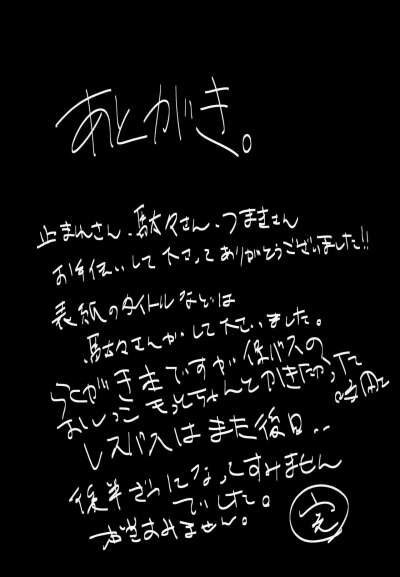 あとがき。
止まれさん、駄々さん、つまきさん
お手伝いして下さってありがとうございました!!
表紙のタイトルなどは
駄々さんがして下さいました。
らくがき本ですが保バスの
おしっこもっとちゃんとかきたかった
レズバスはまた後日..
後半ざつになってすみません
でした。
本当すみません。
完